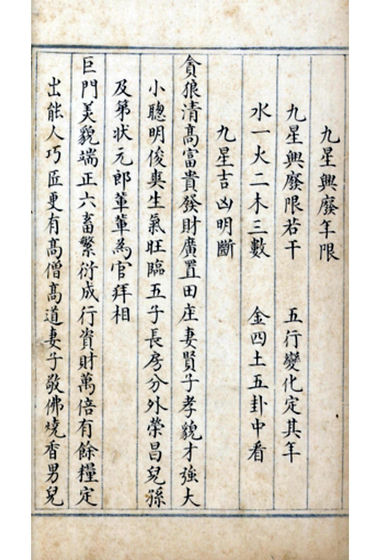 九星興廢年限
九星興廢限若干　五行變化定其年
水一火二木三數　金四土五卦中看
九星吉凶明斷
貪狼清高富貴發財廣置田庄妻賢子孝貌才強大
小聰明俊爽生氣旺臨五子長房分外榮昌兒孫
及第狀元郎輩輩為官拜相
巨門美貌端正六畜繁衍成行資財萬倍有餘糧定
出能人巧匠更有高僧高道妻子敬佛燒香男兒